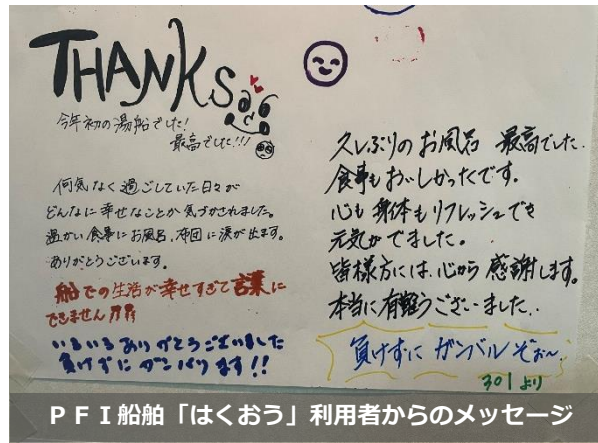 THANKS
今年初の湯船でした!
最高でした!!!
何気なく過ごしていた日々が
どんなに幸せなことか気づかされました。
温かい食事にお風呂、布団に涙が出ます。
ありがとうございます。
船での生活が幸せすぎて言葉に
できません
いろいろありがとうございました
負けずにガンバります!!
久しぶりのお風呂 最高でした.
食事もおいしかったです.
心も身体もリフレッシュでき
元気がでました。
皆様方には、心から感謝します。
本当に有難うございました.
負けずに ガンバル ぞぉ〜
301より
PFI船舶「はくおう」利用者からのメッセージ